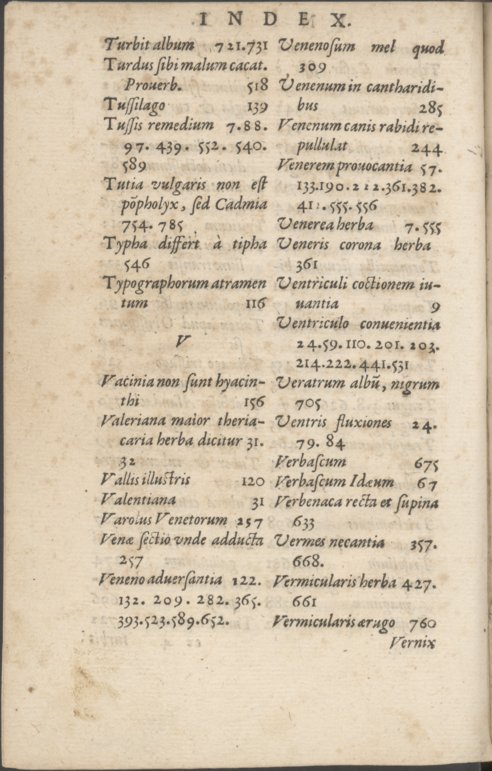 INDEX.
Turbit album 721.731
Turdus ſibi malum cacat.
Prouerb. 518
Tuſſilago 139
Tuſſis remedium 7.88.
97. 439. 552. 540.
589
Tutia vulgaris non eſt
põpholyx, ſed Cadmia
754. 785
Typha differt à tipha
546
Typographorum atramen
tum 116
V
Vacinia non ſunt hyacin-
thi 156
Valeriana maior theria-
caria herba dicitur 31.
32
Vallis illuſtris 120
Valentiana 31
Varolus Venetorum 257
Venæ ſectio vnde adducta
257
Veneno aduerſantia 122.
132. 209. 282. 365.
393.523.589.652.
Venenoſum mel quod
309
Venenum in cantharidi-
bus 285
Venenum canis rabidi re-
pullulat 244
Venerem prouocantia 57.
133.190.212.361.382.
555.556
Venerea herba 7.555
Veneris corona herba
361
Ventriculi coctionem iu-
uantia 9
Ventriculo conuenientia
24.59.110.201.203.
214.222.441.531
Veratrum albũ, nigrum
705
Ventris fluxiones 24.
79. 84
Verbaſcum 675
Verbaſcum Idæum 67
Verbenaca recta et ſupina
633
Vermes necantia 357.
668.
Vermicularis herba 427.
661
Vermicularis ærugo 760
Vernix